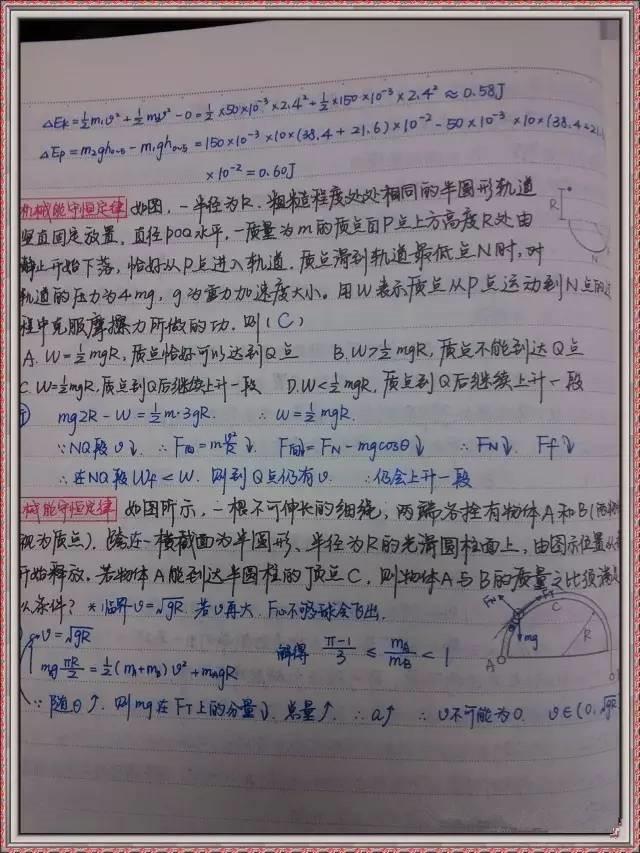 △Ek=½m₁v²+½m₂v²-0=½×50×10⁻³×2.4²+½×150×10⁻³×2.4²≈0.58J
△Ep=m₂gh₀₋₅-m₁gh₀₋₅=150×10⁻³×10×(38.4+21.6)×10⁻²-50×10⁻³×10×(38.4+21.
×10⁻²=0.60J
机械能守恒定律 如图,一半径为R、粗糙程度处处相同的半圆形轨道
竖直固定放置,直径POQ水平,一质量为m的质点自P点上方高度R处由
静止开始下落,恰好从P点进入轨道.质点滑到轨道最低点N时,对
轨道的压力为4mg,g为重力加速度大小。用W表示质点从P点运动到N点的过
程中克服摩擦力所做的功.则(C)
A.W=½mgR,质点恰好可以达到Q点 B.W>½mgR,质点不能到达Q点
C.W=½mgR,质点到Q后继续上升一段 D.W<½mgR,质点到Q后继续上升一段
mg2R-W=½m·3gR. ∴W=½mgR.
∵NQ段v↓.∴F向=mv²/R↓. F向=FN-mgcosθ↓ ∴FN↓. Ff↓
∴在NQ段Wf<W.则到Q点仍有v. ∴仍会上升一段
械能守恒定律 如图所示,一根不可伸长的细绳,两端各拴有物体A和B(两物
视为质点).跨在一横截面为半圆形、半径为R的光滑圆柱面上,由图示位置从
开始释放.若物体A能到达半圆柱的顶点C,则物体A与B的质量之比须满足
么条件? *临界v=√gR.若v再大.FN不够球会飞出.
v=√gR 解得 (π-1)/3≤mA/mB<1
mg πR/2=½(mA+mB)v²+mAgR
∵随θ↑.则mg在FT上的分量↓.总量↑.∴a↑ ∴v不可能为0. v∈(0,√gR
R
N
FN
FT
C
mg
R
A